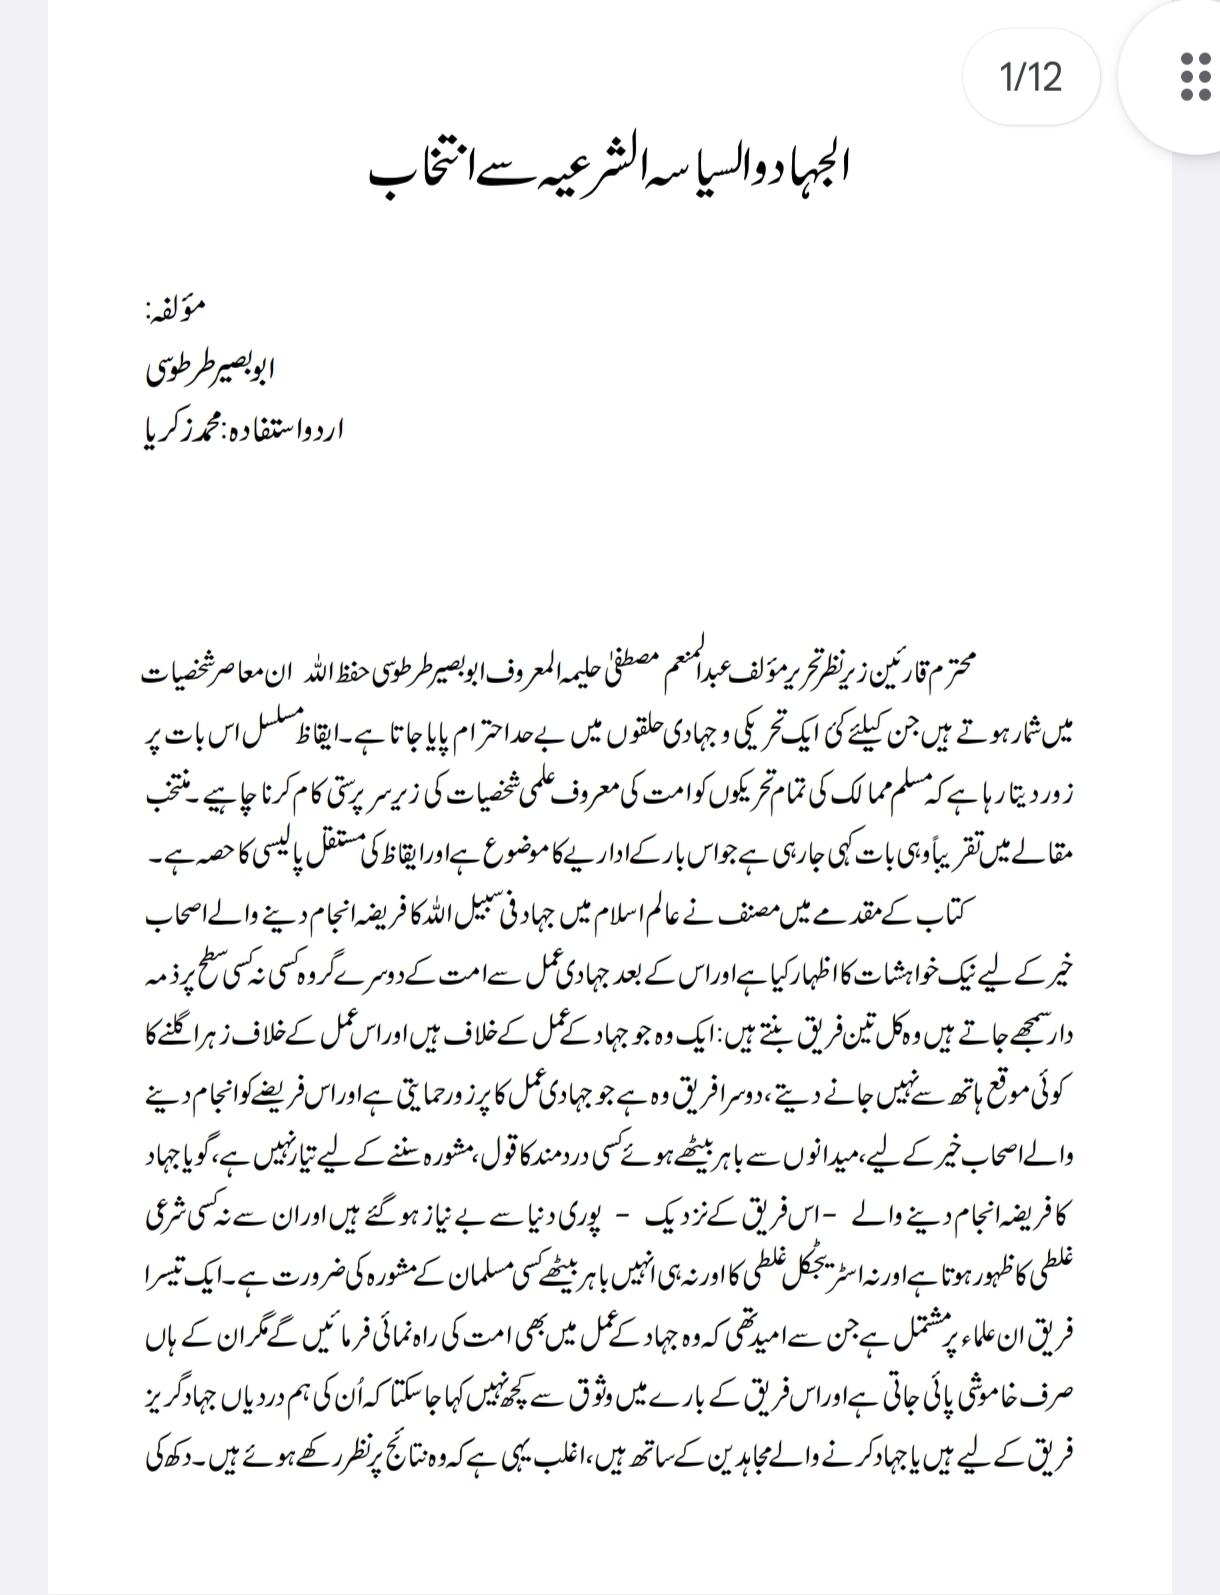 1/12
الجہاد والسیاسہ الشرعیہ سے انتخاب
مؤلفہ:
ابوبصیر طرطوسی
اردو استفادہ: محمد زکریا
محترم قارئین زیر نظر تحریر مؤلف عبدالمنعم مصطفیٰ حلیمہ المعروف ابوبصیر طرطوسی حفظ اللہ ان معاصر شخصیات
میں شمار ہوتے ہیں جن کیلئے کئی ایک تحریکی و جہادی حلقوں میں بے حد احترام پایا جاتا ہے۔ ایقاظ مسلسل اس بات پر
زور دیتا رہا ہے کہ مسلم ممالک کی تمام تحریکوں کو امت کی معروف علمی شخصیات کی زیر سرپرستی کام کرنا چاہیے۔ منتخب
مقالے میں تقریباً وہی بات کہی جا رہی ہے جو اس بار کے اداریے کا موضوع ہے اور ایقاظ کی مستقل پالیسی کا حصہ ہے۔
کتاب کے مقدمے میں مصنف نے عالم اسلام میں جہاد فی سبیل اللہ کا فریضہ انجام دینے والے اصحاب
خیر کے لیے نیک خواہشات کا اظہار کیا ہے اور اس کے بعد جہادی عمل سے امت کے دوسرے گروہ کسی نہ کسی سطح پر ذمہ
دار سمجھے جاتے ہیں وہ کل تین فریق بنتے ہیں: ایک وہ جو جہاد کے عمل کے خلاف ہیں اور اس عمل کے خلاف زہر اگلنے کا
کوئی موقع ہاتھ سے نہیں جانے دیتے، دوسرا فریق وہ ہے جو جہادی عمل کا پرزور حمایتی ہے اور اس فریضے کو انجام دینے
والے اصحاب خیر کے لیے، میدانوں سے باہر بیٹھے ہوئے کسی دردمند کا قول، مشورہ سننے کے لیے تیار نہیں ہے، گویا جہاد
کا فریضہ انجام دینے والے - اس فریق کے نزدیک - پوری دنیا سے بے نیاز ہو گئے ہیں اور ان سے نہ کسی شرعی
غلطی کا ظہور ہوتا ہے اور نہ اسٹریٹجکل غلطی کا اور نہ ہی انہیں باہر بیٹھے کسی مسلمان کے مشورہ کی ضرورت ہے۔ ایک تیسرا
فریق ان علماء پر مشتمل ہے جن سے امید تھی کہ وہ جہاد کے عمل میں بھی امت کی راہ نمائی فرمائیں گے مگر ان کے ہاں
صرف خاموشی پائی جاتی ہے اور اس فریق کے بارے میں وثوق سے کچھ نہیں کہا جا سکتا کہ اُن کی ہم دردیاں جہاد گریز
فریق کے لیے ہیں یا جہاد کرنے والے مجاہدین کے ساتھ ہیں، اغلب یہی ہے کہ وہ نتائج پر نظر رکھے ہوئے ہیں۔ دکھ کی